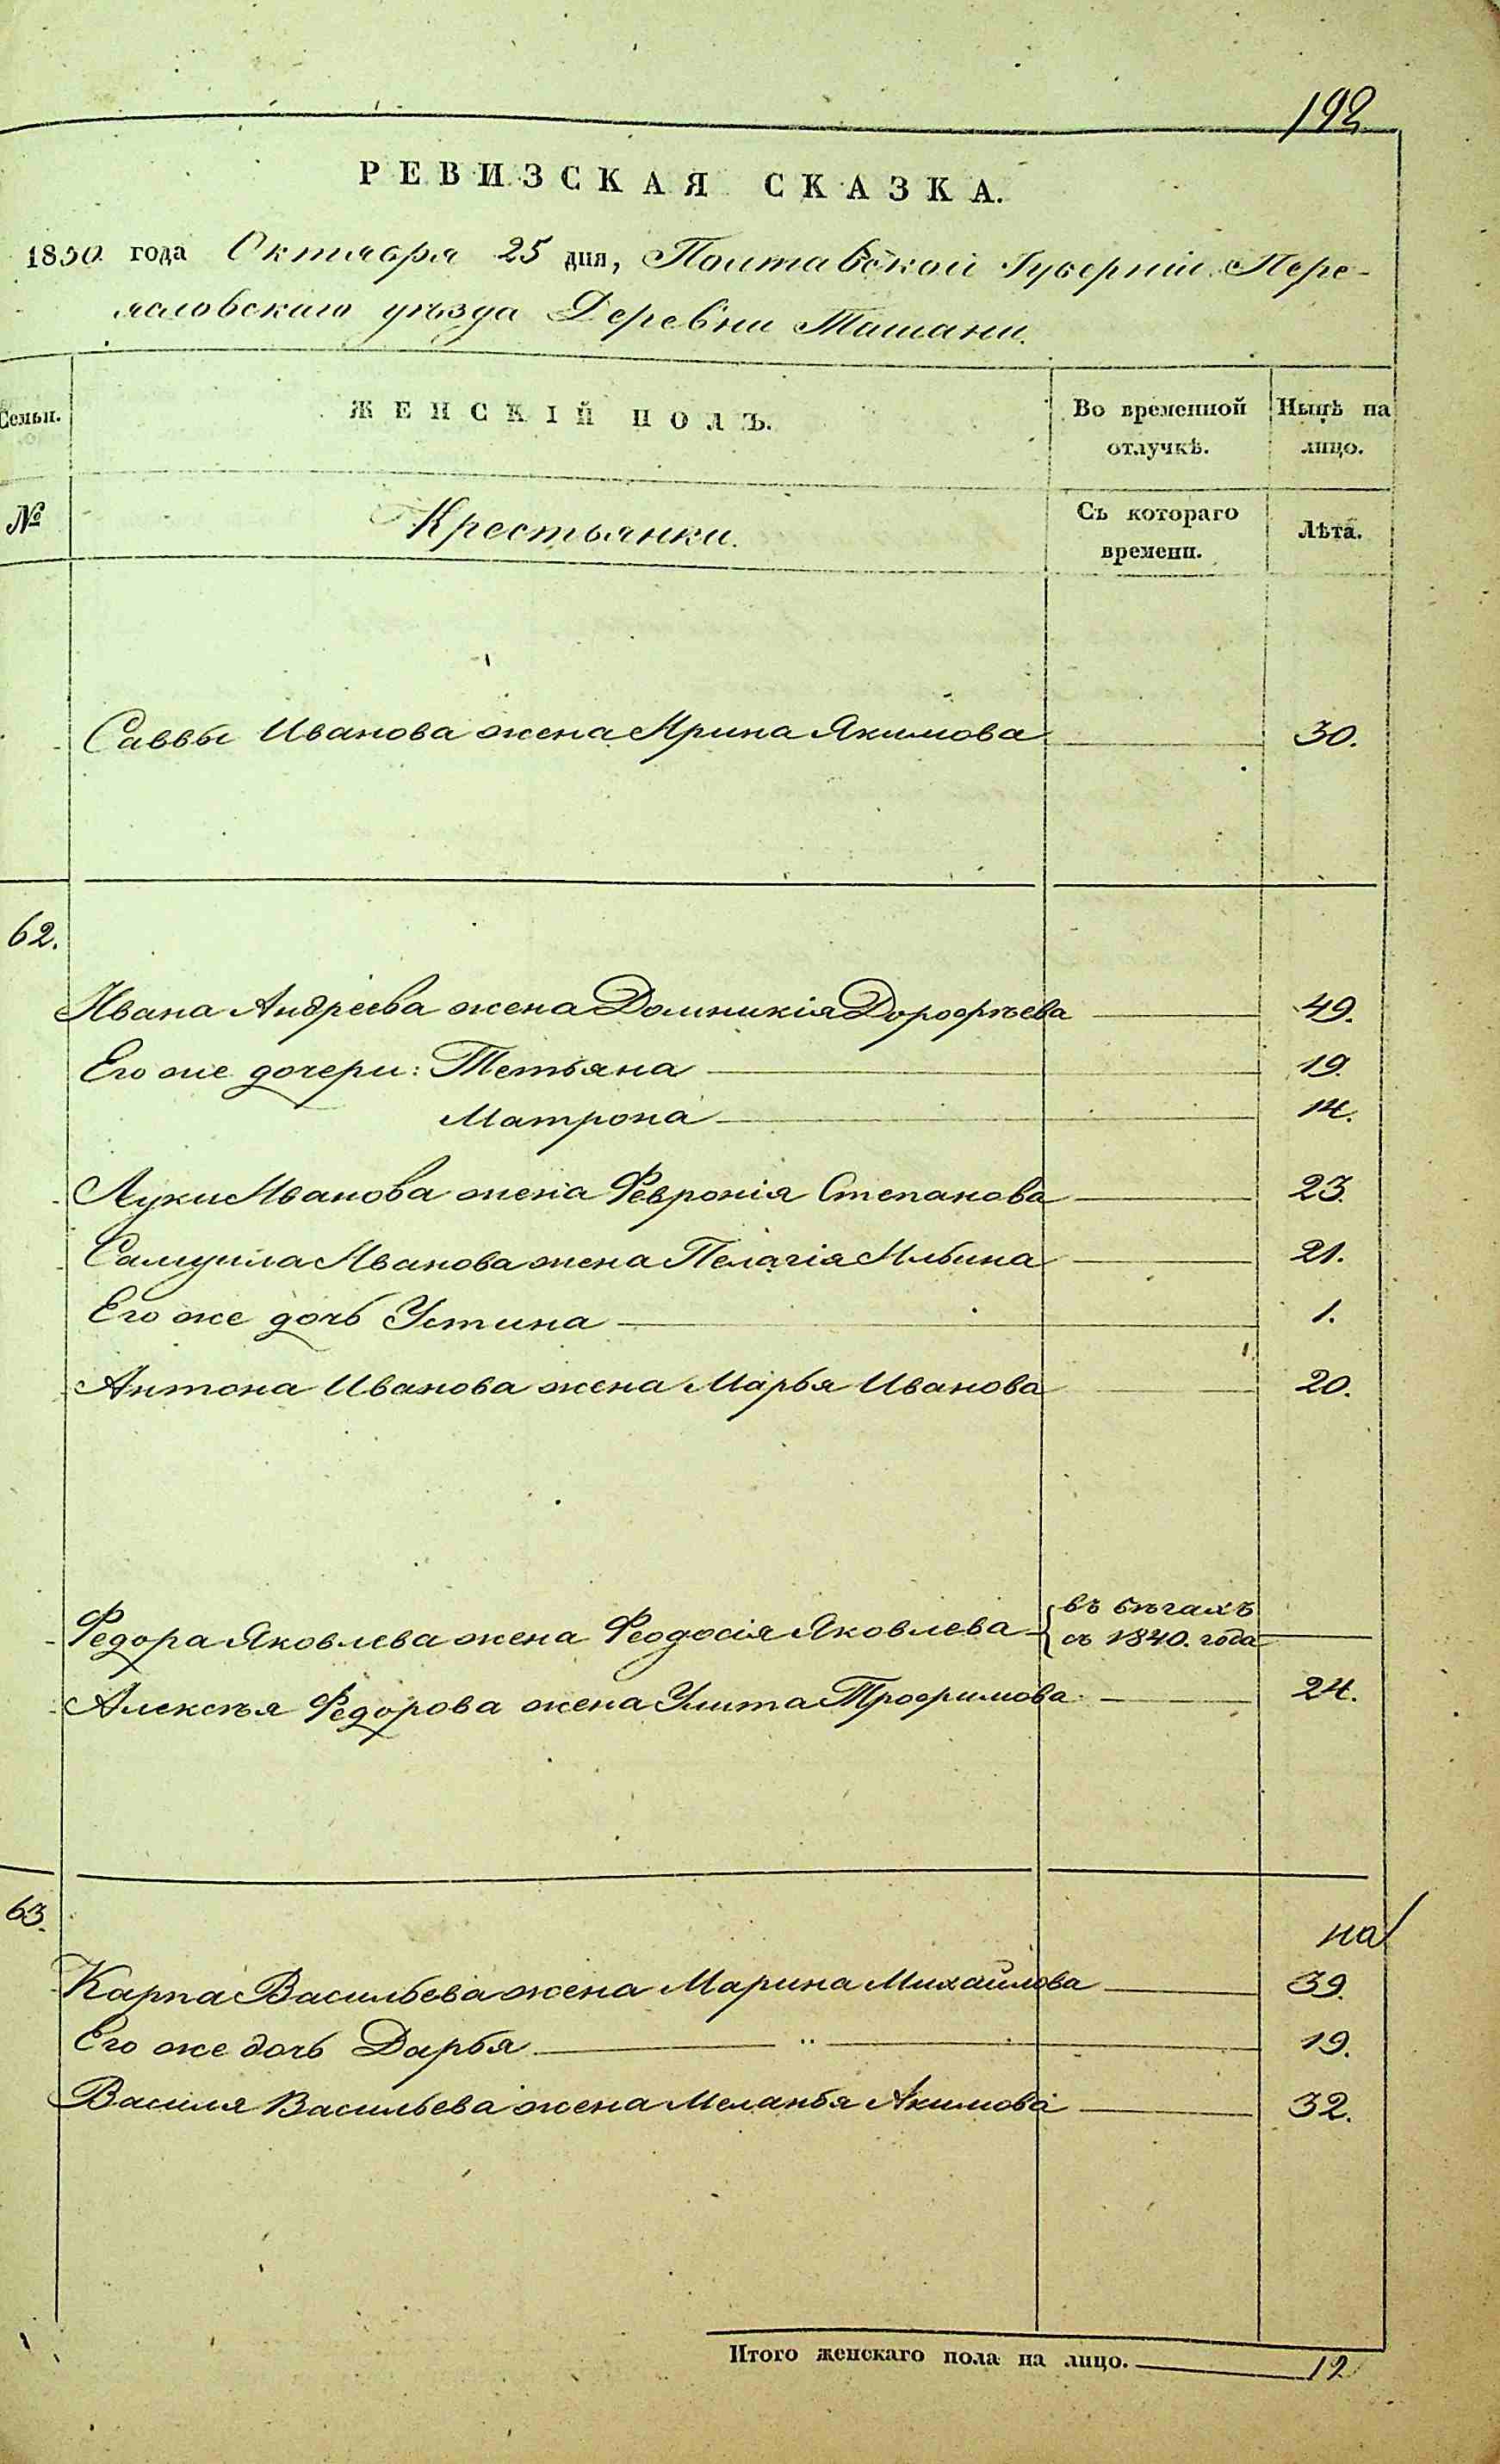 192
РЕВИЗСКАЯ СКАЗКА.
1850 года Октября 25 дня, Полтавской Губерніи Пере-
ясловскаго уѣзда Деревни Ташани.
Семьи. ЖЕНСКІЙ ПОЛЪ. Во временной отлучкѣ. Нынѣ на лицо.
№ Крестьянки. Съ котораго времени. Лѣта.
Саввы Иванова жена Ирина Якимова 30.
62.
Ивана Андреева жена Домникія Дорофѣева 49.
Его же дочери: Тетьяна 19.
Матрона 14.
Луки Иванова жена Февронія Степанова 23.
Самуила Иванова жена Пелагія Ильина 21.
Его же дочь Устина 1.
Антона Иванова жена Марья Иванова 20.
Федора Яковлева жена Феодосія Яковлева въ бѣгахъ съ 1840. года
Алексѣя Федорова жена Улита Трофимова 24.
63.
на
Карпа Васильева жена Марина Михайлова 39.
Его же дочь Дарья 19.
Василя Васильева жена Меланья Акимова 32.
Итого женскаго пола на лицо. 12